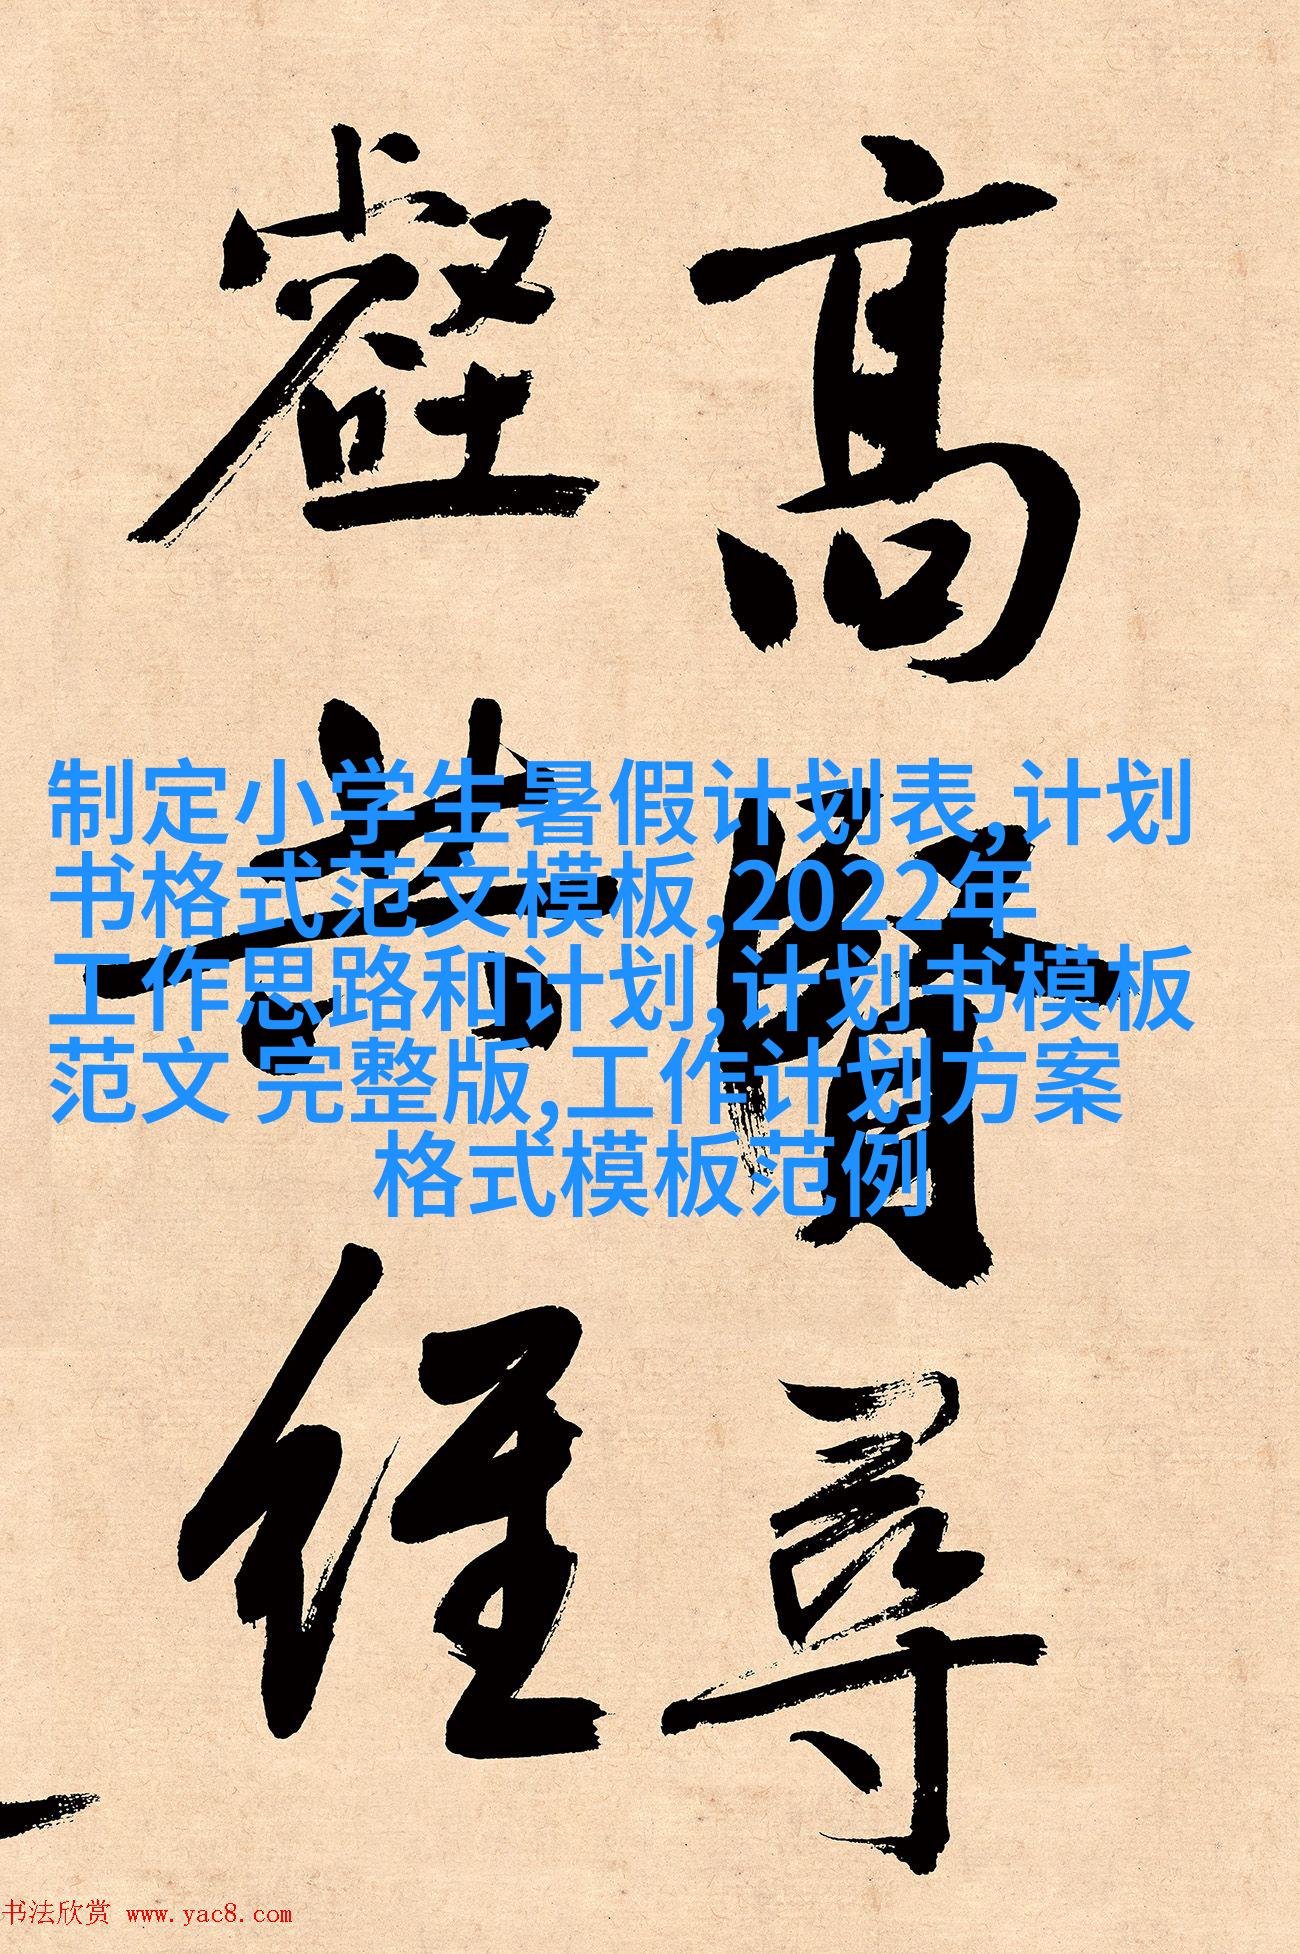 高賢尋
壑共經
制定小学生暑假计划表,计划
书格式范文模板,2022年
工作思路和计划,计划书模板
范文 完整版,工作计划方案
格式模板范例
书法欣赏 www.yac8.com